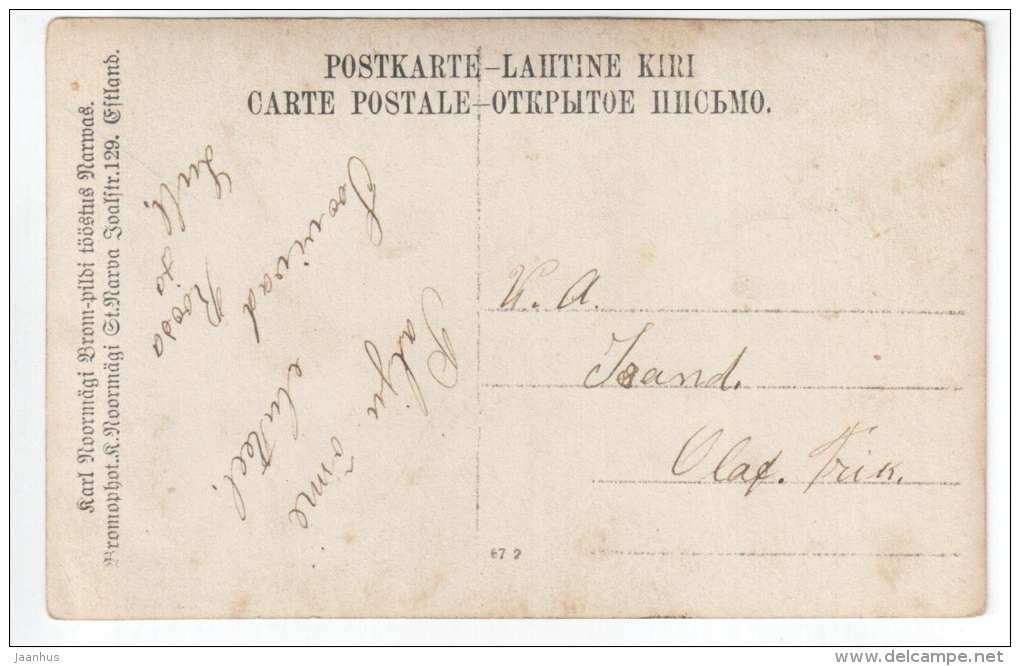 POSTKARTE–LAHTINE KIRI
CARTE POSTALE–ОТКРЫТОЕ ПИСЬМО.
Karl Noormägi Brom-pildi tööstus Narwas.
Bromophot.K.Noormägi St.Narva Joalstr.129. Estland.
Palju õnne
Soovivad eluteel.
Roosa
V. A.
Isand.
Olaf. Trik.
67 2
jaanhus
www.delcampe.net